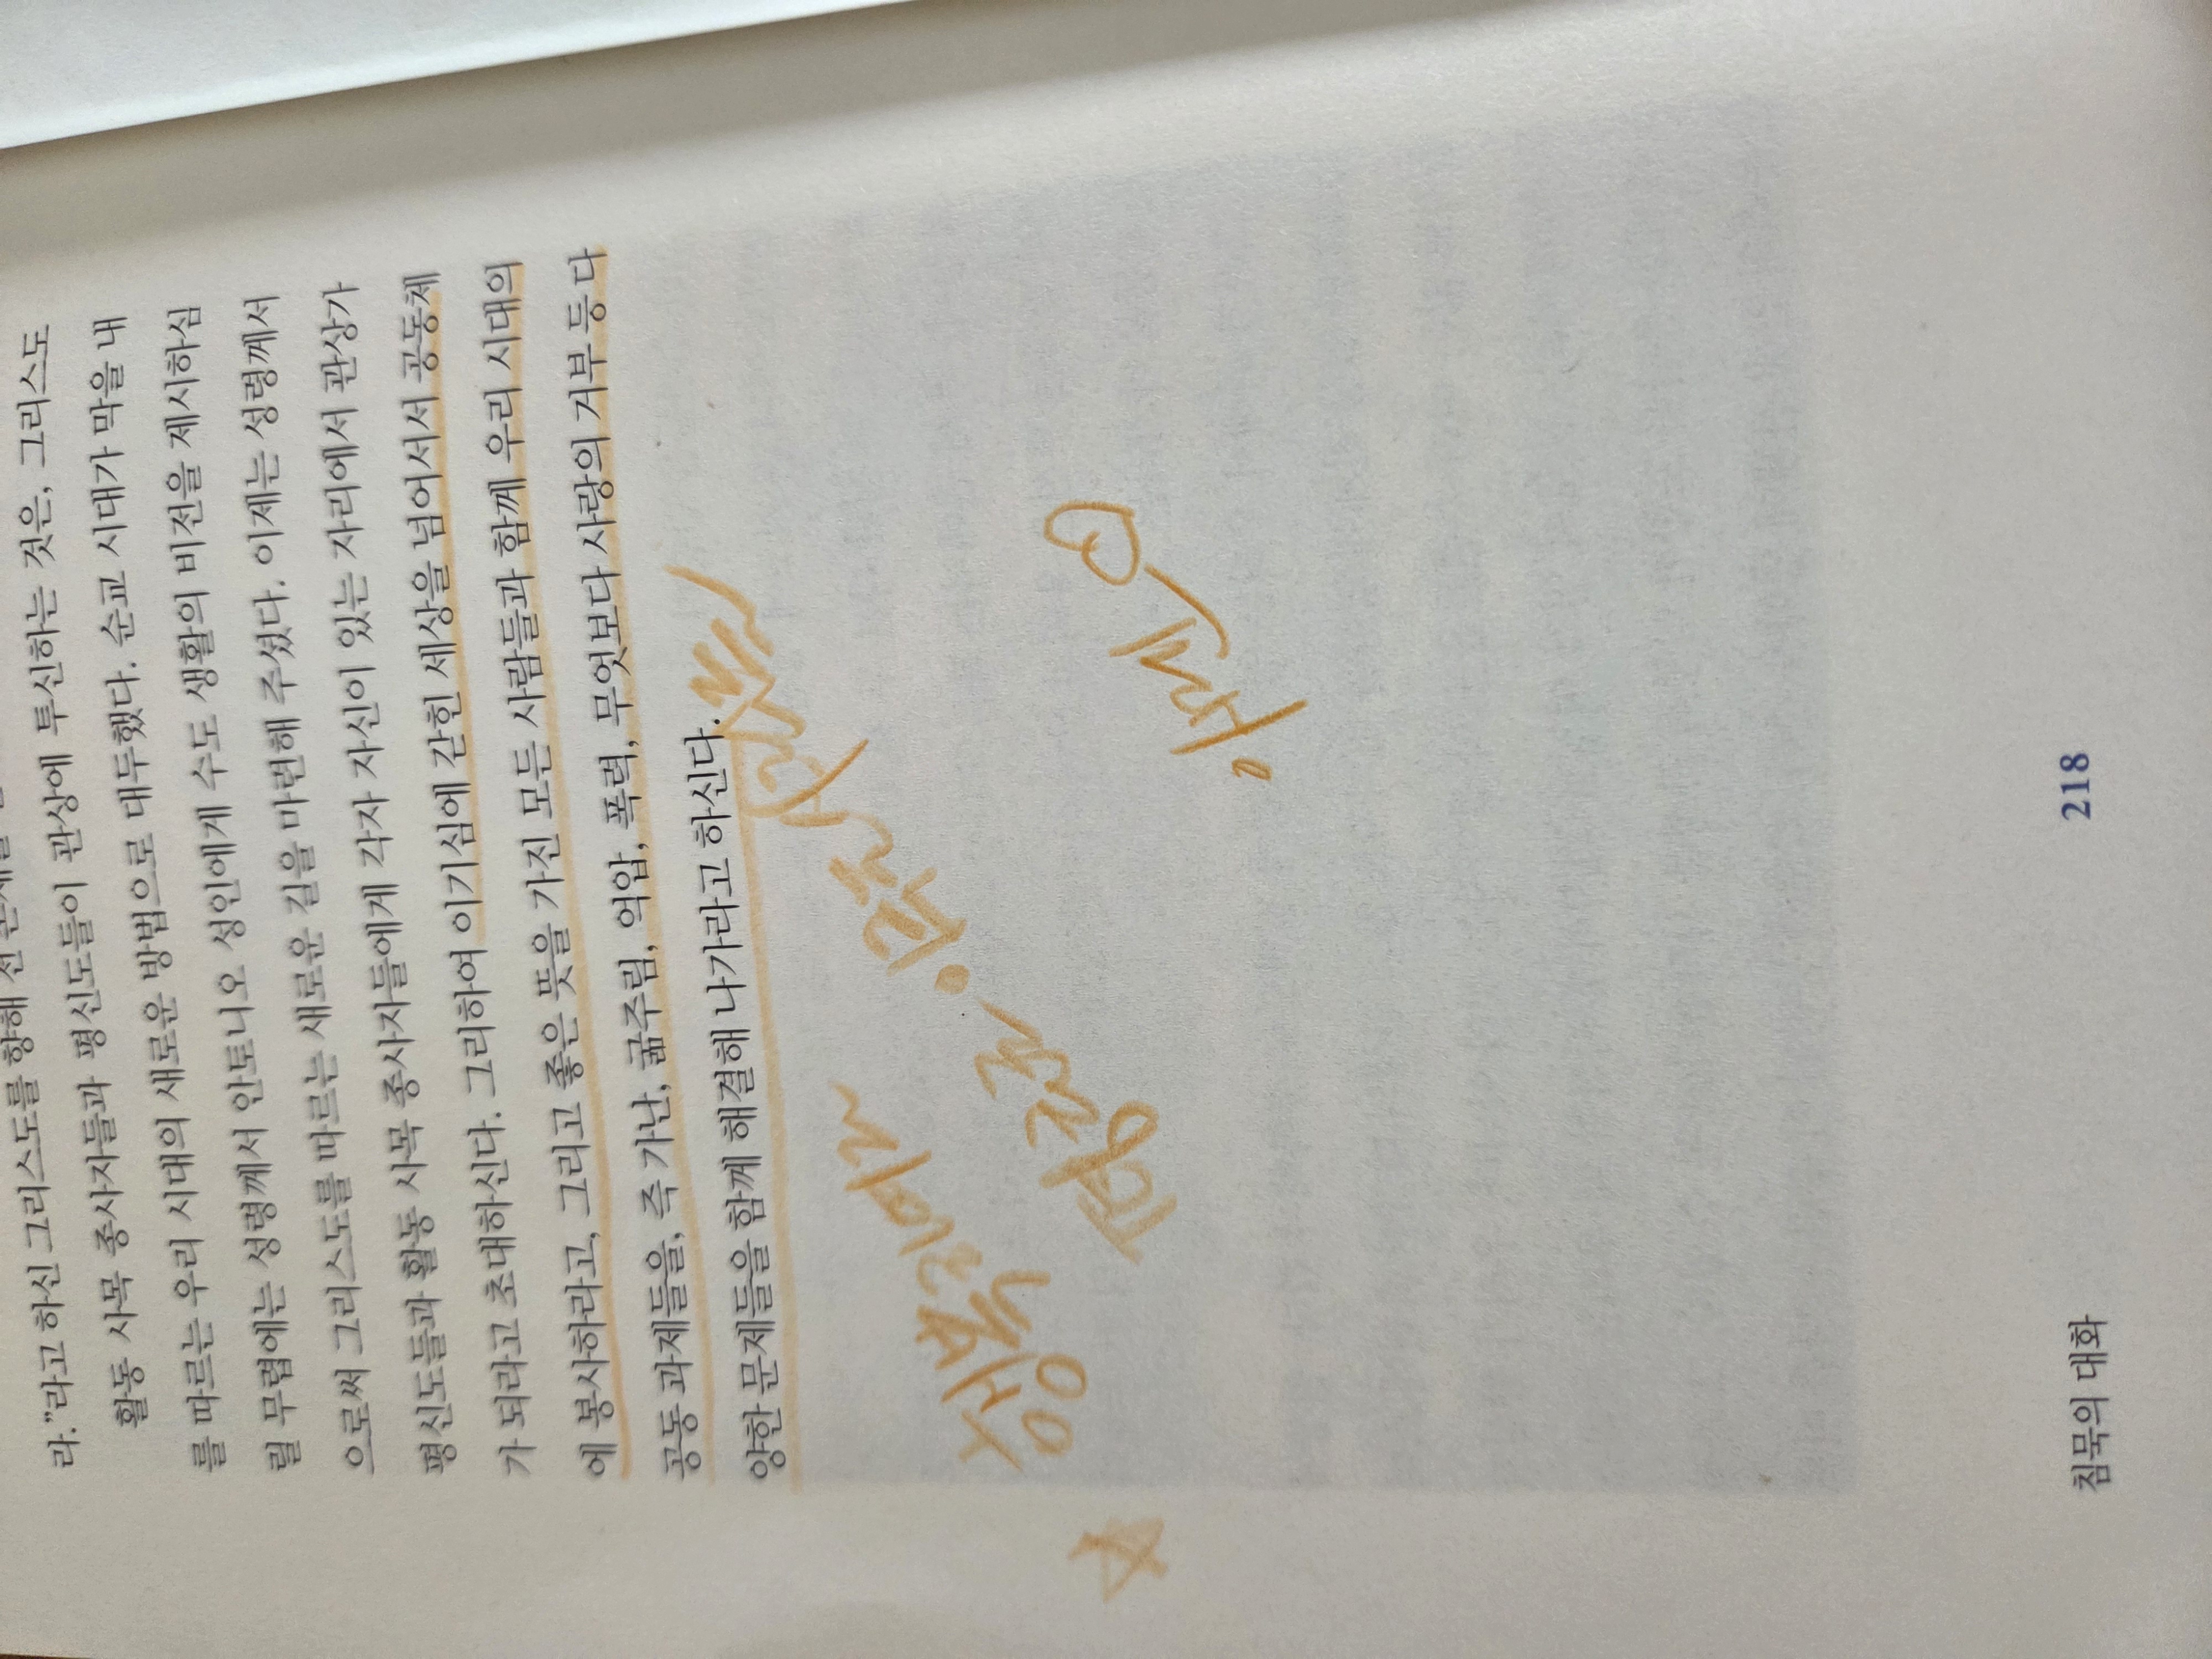 라.”라고 하신 그리스도를 향해 선
활동 사목 종사자들과 평신도들이 관상에 투신하는 것은, 그리스도
를 따르는 우리 시대의 새로운 방법으로 대두했다. 순교 시대가 막을 내
릴 무렵에는 성령께서 안토니오 성인에게 수도 생활의 비전을 제시하심
으로써 그리스도를 따르는 새로운 길을 마련해 주셨다. 이제는 성령께서
평신도들과 활동 사목 종사자들에게 각자 자신이 있는 자리에서 관상가
가 되라고 초대하신다. 그리하여 이기심에 갇힌 세상을 넘어서서 공동체
에 봉사하라고, 그리고 좋은 뜻을 가진 모든 사람들과 함께 우리 시대의
공동 과제들을, 즉 가난, 굶주림, 억압, 폭력, 무엇보다 사랑의 거부 등 다
양한 문제들을 함께 해결해 나가라고 하신다.
행복
침묵의 대화
218